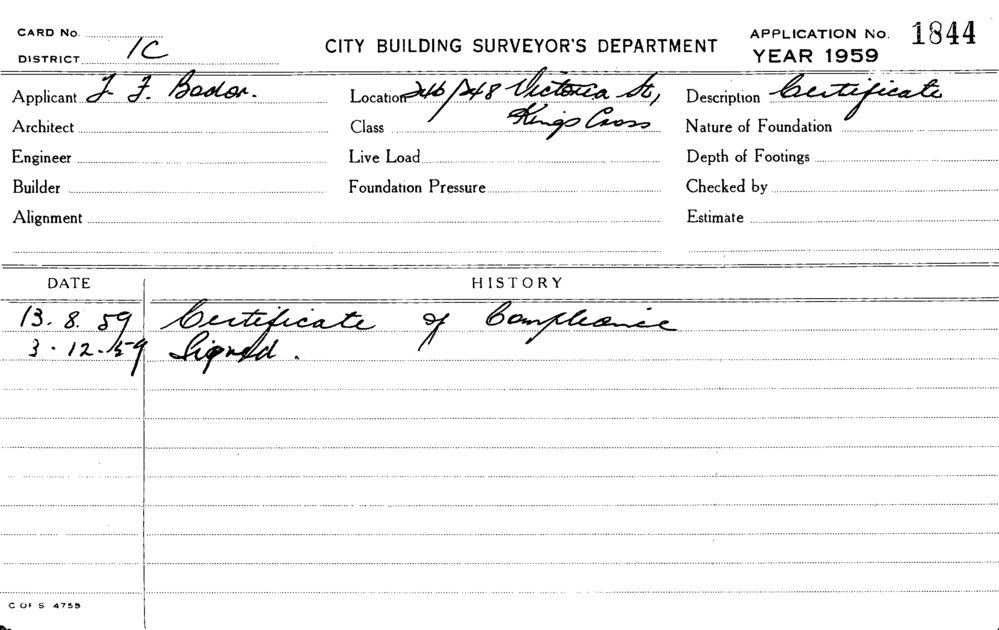 CARD No.
DISTRICT 1C
CITY BUILDING SURVEYOR'S DEPARTMENT
APPLICATION No. 1844
YEAR 1959
Applicant J. F. Bador.
Location 246/248 Victoria St,
Description Certificate
Architect
Class Kings Cross
Nature of Foundation
Engineer
Live Load
Depth of Footings
Builder
Foundation Pressure
Checked by
Alignment
Estimate
DATE HISTORY
13. 8. 59 Certificate of Compliance
3. 12. 59 Signed.
C OF S 4755